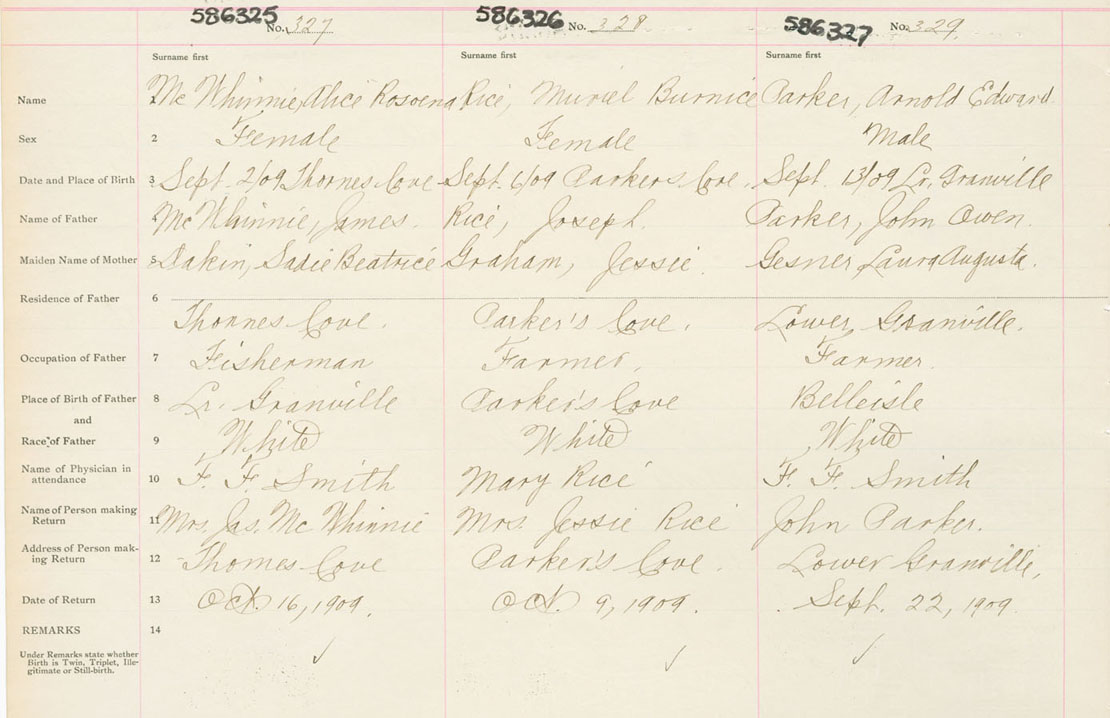 586325 No. 327 586326 No. 328 586327 No. 329
Surname first Surname first Surname first
Name 1 Mc Whinnie, Alice Rosvena Rice, Muriel Burnice Parker, Arnold Edward
Sex 2 Female Female Male
Date and Place of Birth 3 Sept. 2/09 Thornes Cove Sept. 6/09 Parkers Cove. Sept. 13/09 Lr. Granville
Name of Father 4 Mc Whinnie, James. Rice, Joseph. Parker, John Owen.
Maiden Name of Mother 5 Dakin, Sadie Beatrice Graham, Jessie. Gesner Laura Augusta.
Residence of Father 6
Thornes Cove. Parker's Cove. Lower Granville.
Occupation of Father 7 Fisherman Farmer. Farmer.
Place of Birth of Father 8 Lr. Granville Parker's Cove Belleisle
and
Race of Father 9 White White White
Name of Physician in
attendance 10 F. F. Smith Mary Rice F. F. Smith
Name of Person making
Return 11 Mrs. Jas. Mc Whinnie Mrs. Jessie Rice John Parker.
Address of Person mak-
ing Return 12 Thornes Cove Parker's Cove. Lower Granville,
Date of Return 13 Oct. 16, 1909. Oct. 9, 1909. Sept. 22, 1909.
REMARKS 14
Under Remarks state whether
Birth is Twin, Triplet, Ille-
gitimate or Still-birth.